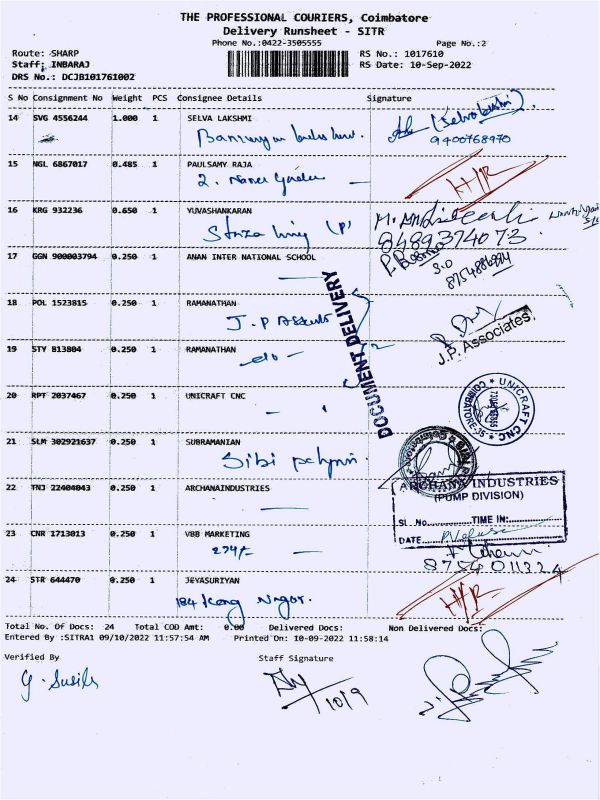 THE PROFESSIONAL COURIERS, Coimbatore
Delivery Runsheet - SITR
Phone No.:0422-3505555 Page No.:2
Route: SHARP RS No.: 1017610
Staff: INBARAJ RS Date: 10-Sep-2022
DRS No.: DCJB101761002
S No Consignment No Weight PCS Consignee Details Signature
14 SVG 4556244 1.000 1 SELVA LAKSHMI
(Selvalakshmi)
9400768970
15 NGL 6867017 0.485 1 PAULSAMY RAJA
H/R
16 KRG 932236 0.650 1 YUVASHANKARAN
8489374073
17 GGN 900003794 0.250 1 ANAN INTER NATIONAL SCHOOL
S.O
DOCUMENT DELIVERY
18 POL 1523815 0.250 1 RAMANATHAN
J.P Associates
J.P. Associates
19 STY 813804 0.250 1 RAMANATHAN
-do-
20 RPT 2037467 0.250 1 UNICRAFT CNC
UNICRAFT CNC
COIMBATORE-35
21 SLM 302921637 0.250 1 SUBRAMANIAN
Sibi
22 TNJ 22404043 0.250 1 ARCHANAINDUSTRIES
ARCHANA INDUSTRIES
(PUMP DIVISION)
SI. No. TIME IN:
DATE
23 CNR 1713013 0.250 1 VBB MARKETING
274/-
8754011324
24 STR 644470 0.250 1 JEYASURIYAN
184 Kong Nagar.
H/R
Total No. Of Docs: 24 Total COD Amt: 0.00 Delivered Docs: Non Delivered Docs:
Entered By :SITRA1 09/10/2022 11:57:54 AM Printed On: 10-09-2022 11:58:14
Verified By Staff Signature
10/9